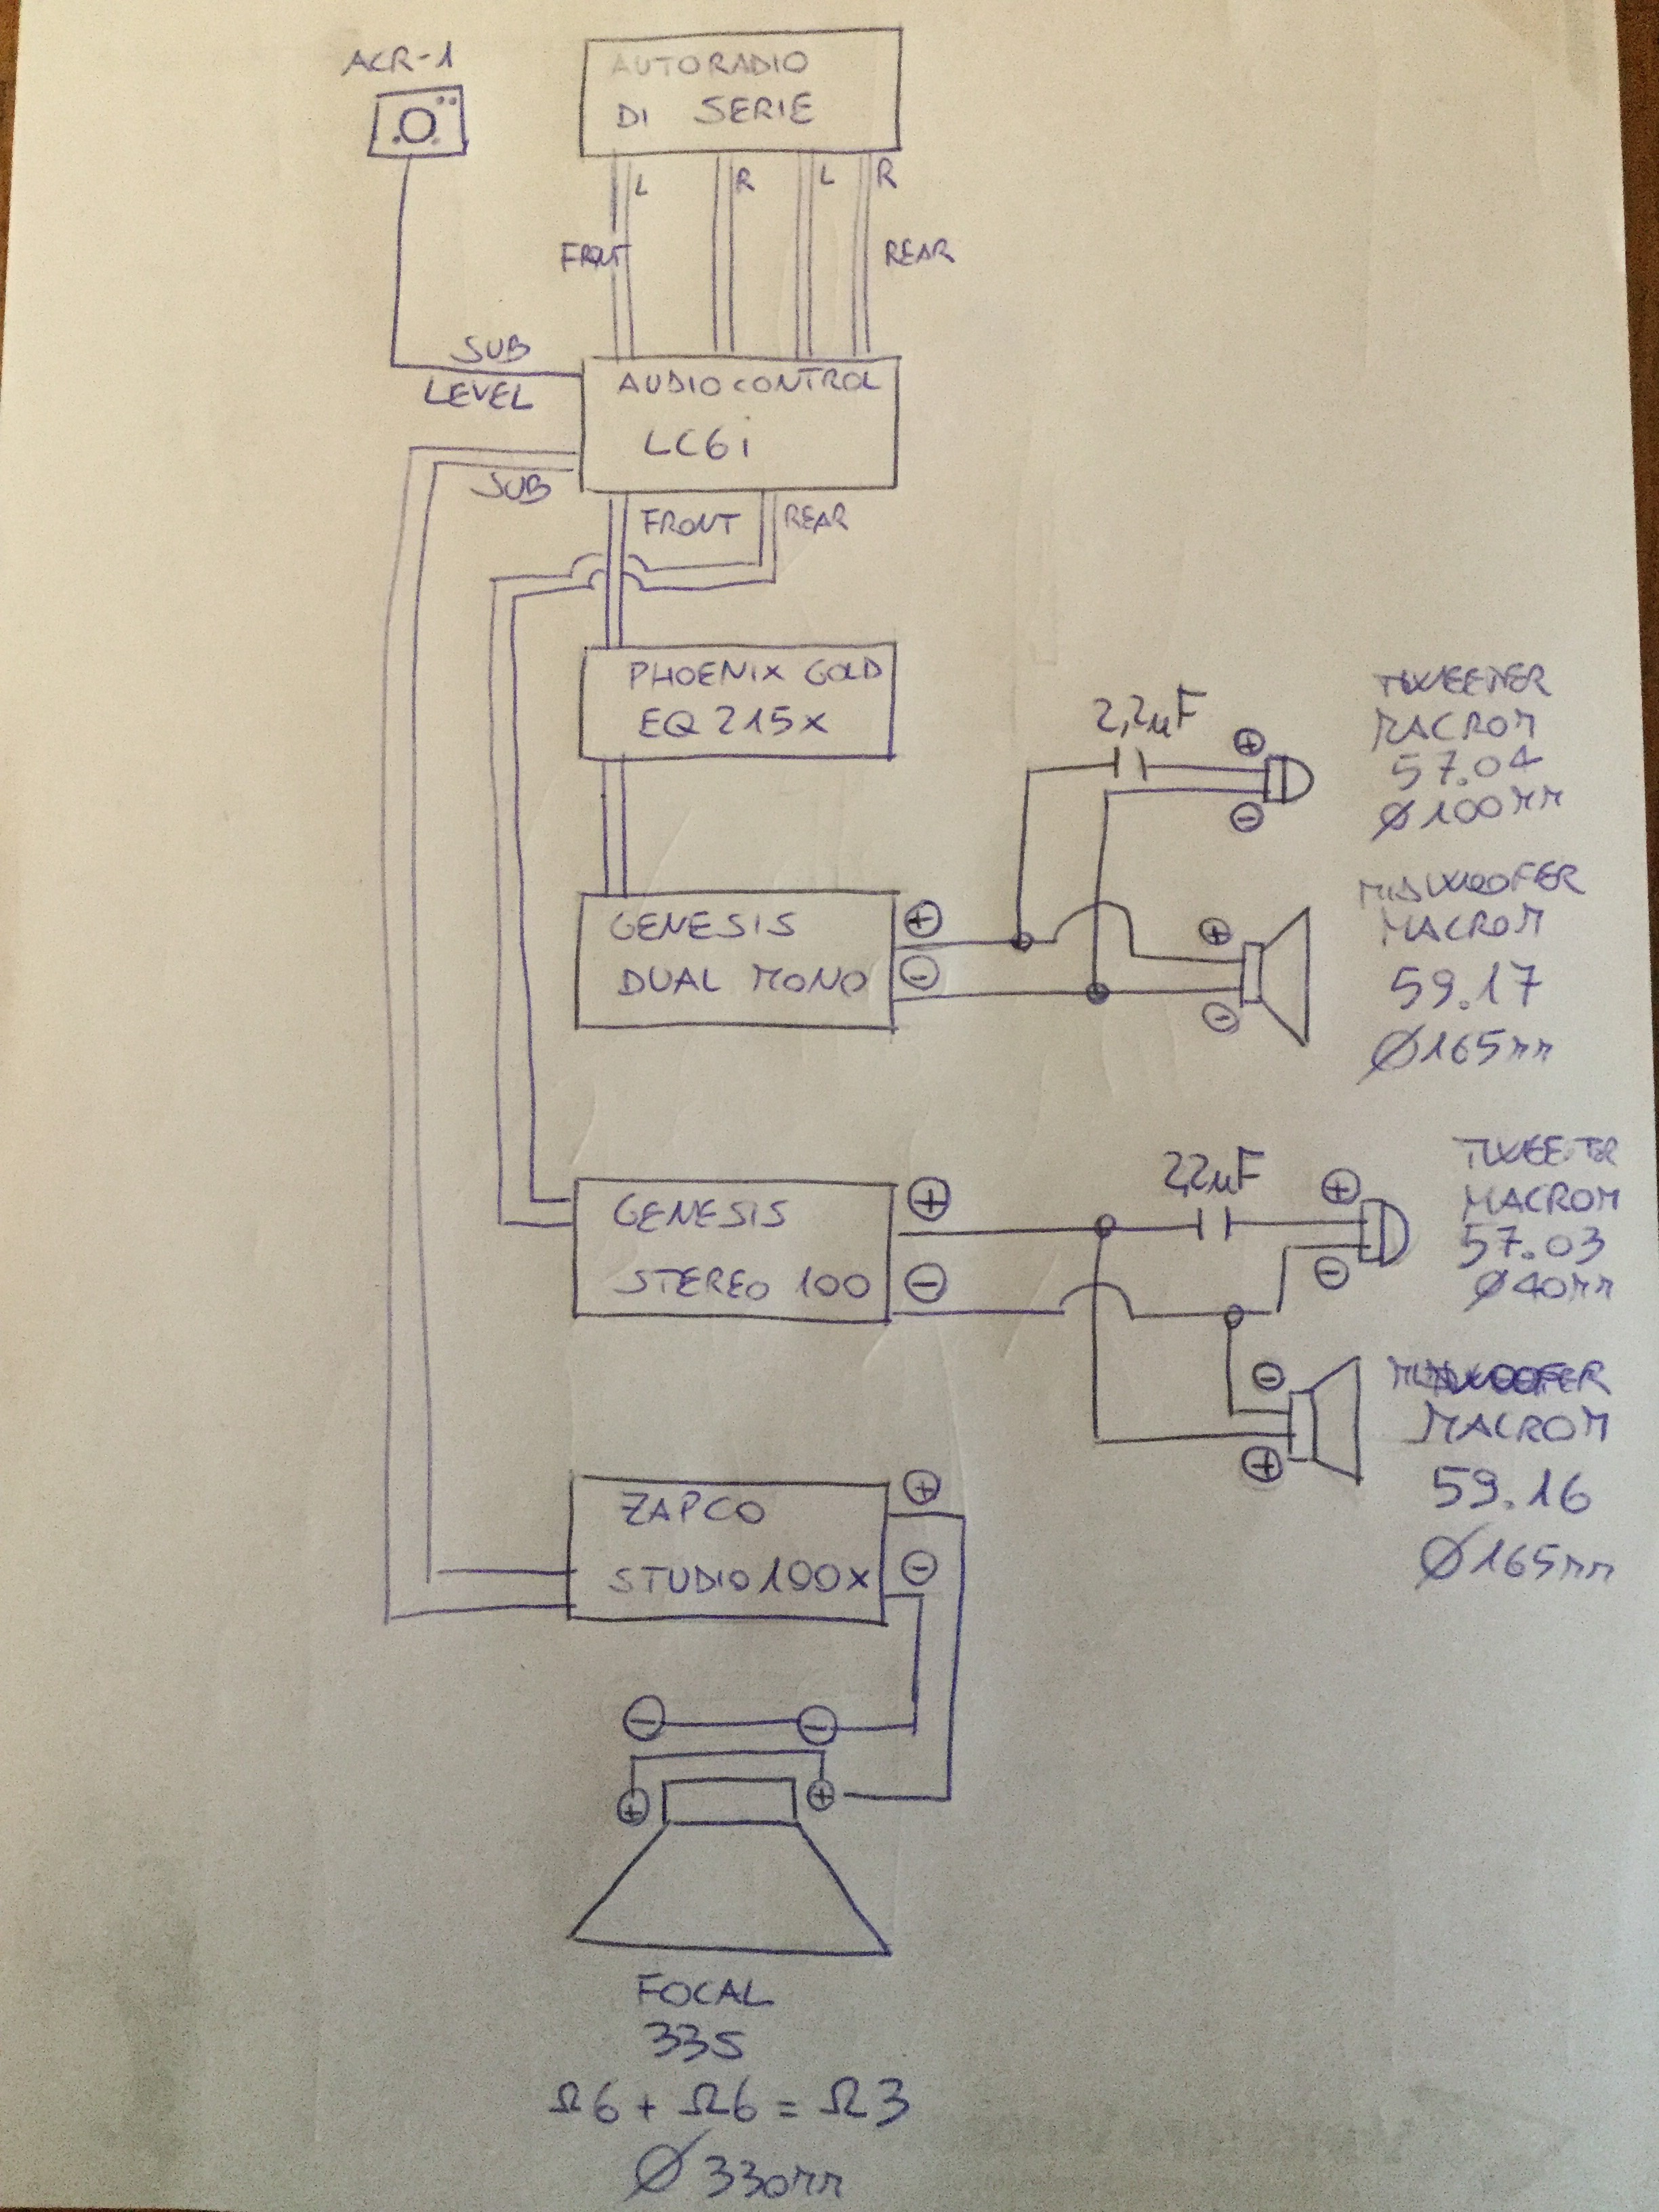 ACR-1
AUTORADIO
DI SERIE
L
R
L
R
FRONT
REAR
SUB
LEVEL
AUDIOCONTROL
LC6i
SUB
FRONT
REAR
PHOENIX GOLD
EQ 215x
2,2µF
+
-
TWEETER
MACROM
57.04
Ø100mm
GENESIS
DUAL MONO
+
-
+
-
MIDWOOFER
MACROM
59.17
Ø165mm
GENESIS
STEREO 100
+
-
2,2µF
+
-
TWEETER
MACROM
57.03
Ø40mm
-
+
MIDWOOFER
MACROM
59.16
Ø165mm
ZAPCO
STUDIO 100x
+
-
-
-
+
+
FOCAL
33S
Ω6 + Ω6 = Ω3
Ø 330mm